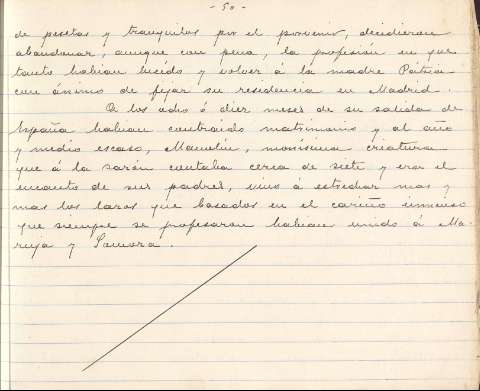 - 50 -
de pesetas y tranquilos por el porvenir, decidieron
abandonar, aunque con pena, la profesión en que
tanto habian lucido y volver á la madre Patria
con ánimo de fijar su residencia en Madrid.
A los ocho ó diez meses de su salida de
España habian contraido matrimonio y al año
y medio escaso, Manolin, monísima criatura
que á la sazón contaba cerca de siete y era el
encanto de sus padres, vino á estrechar mas y
mas los lazos que basados en el cariño inmenso
que siempre se profesaron habian unido á Ma-
ruja y Zamora.